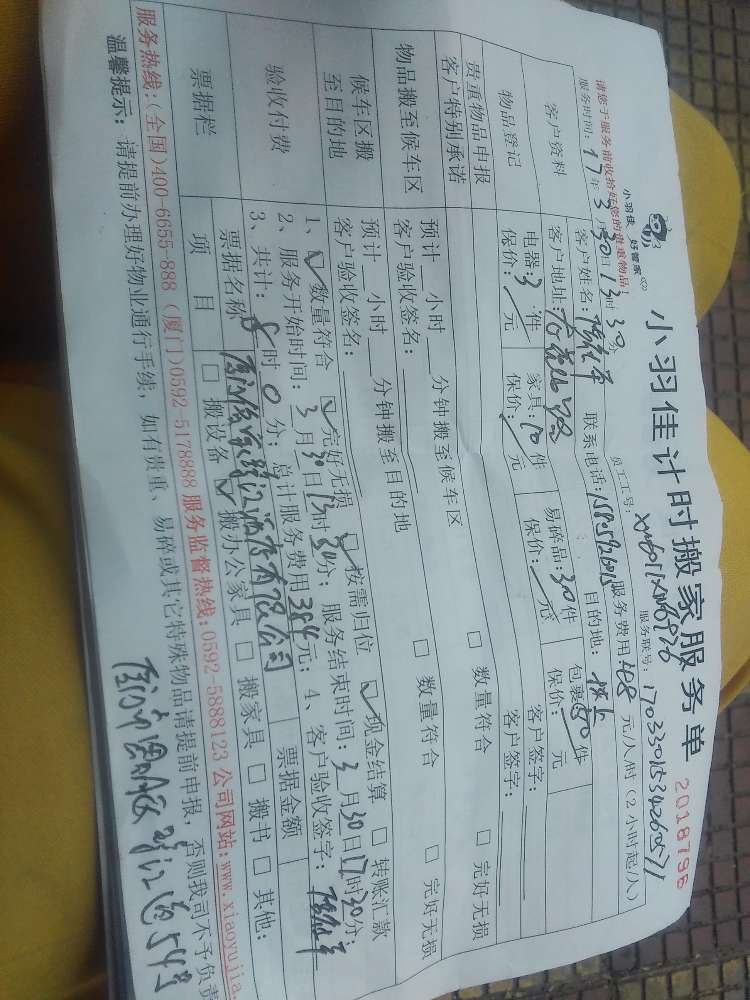 小羽佳 好管家
小羽佳计时搬家服务单
2018798
请您于服务前收拾好您的贵重物品!
员工工号:
服务联号: 1703301534265571
服务时间: 17年3月30日13时30分
服务费用 48 元/人/时(2小时起/人)
客户资料
客户姓名:
联系电话:
目的地:
客户地址:
物品登记
电器: 3 件
家具: 10 件
易碎品: 30 件
包裹 50 件
客户签字:
贵重物品申报
客户特别承诺
保价: 元
保价: 元
保价: 元
保价: 元
客户签字:
物品搬至候车区
预计 小时 分钟搬至候车区
□ 数量符合 □ 完好无损
客户验收签名:
候车区搬
至目的地
预计 小时 分钟搬至目的地
□ 数量符合 □ 完好无损
客户验收签名:
验收付费
1、☑ 数量符合 ☑ 完好无损 ☑ 按需归位 ☑ 现金结算 □ 转账汇款
2、服务开始时间: 3 月 30 日 13 时 30 分; 服务结束时间: 3 月 30 日 17 时 30 分;
3、共计: 8 时 0 分; 总计服务费用 384 元; 4、客户验收签字:
票据栏
票据名称
票据金额
项目
□ 搬设备 ☑ 搬办公家具 □ 搬家具 □ 搬书 □ 其他:
服务热线:(全国)400-6655-888 (厦门)0592-5178888 服务监督热线:0592-5888123 公司网站:www.xiaoyujia.
温馨提示: 请提前办理好物业通行手续, 如有贵重、易碎或其它特殊物品请提前申报, 否则我司不予负责